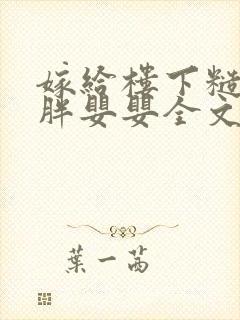 嫁給樓下糙
胖嬰嬰全文
葉一茜